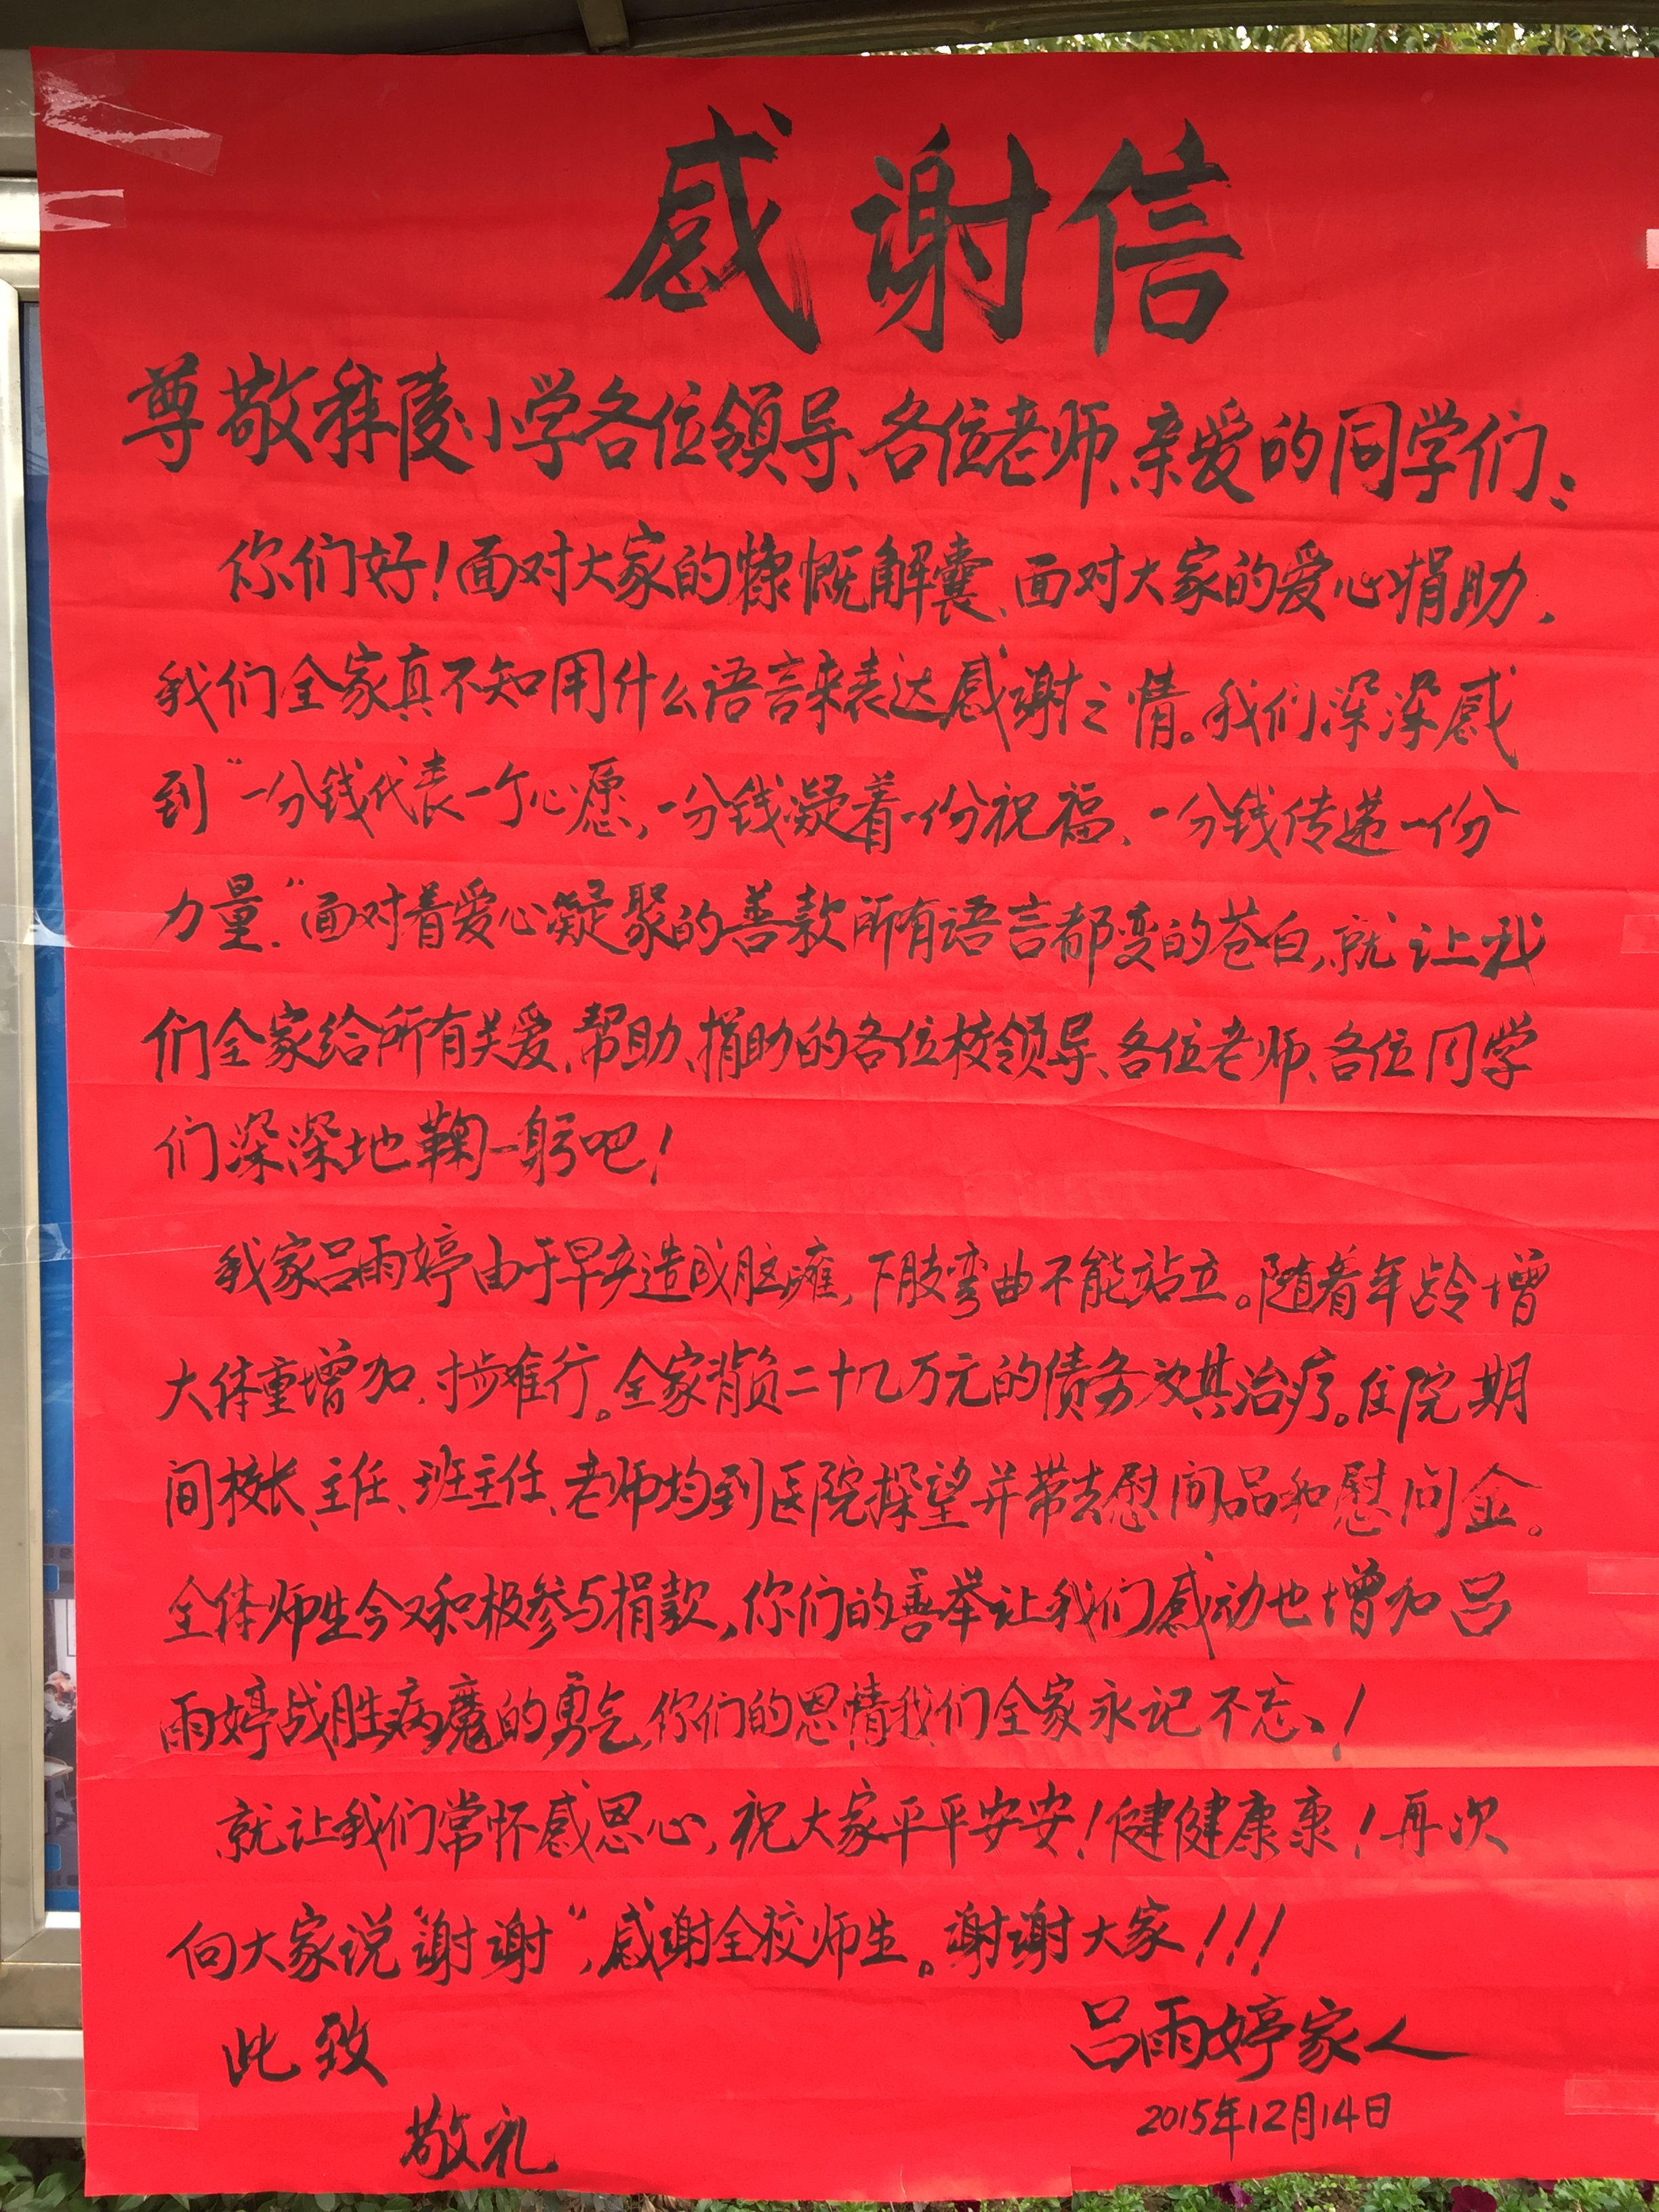 感谢信
尊敬秣陵小学各位领导、各位老师、亲爱的同学们：
你们好！面对大家的慷慨解囊、面对大家的爱心捐助，
我们全家真不知用什么语言来表达感谢之情。我们深深感
到“一分钱代表一个心愿，一分钱凝着一份祝福，一分钱传递一份
力量.”面对着爱心凝聚的善款所有语言都变的苍白，就让我
们全家给所有关爱、帮助、捐助的各位校领导、各位老师、各位同学
们深深地鞠一躬吧！
我家吕雨婷由于早产造成脑瘫，下肢弯曲不能站立。随着年龄增
大体重增加，寸步难行。全家背负二十几万元的债务为其治疗。住院期
间校长、主任、班主任、老师均到医院探望并带去慰问品和慰问金。
全体师生今又积极参与捐款，你们的善举让我们感动也增加吕
雨婷战胜病魔的勇气，你们的恩情我们全家永记不忘！
就让我们常怀感恩心，祝大家平平安安！健健康康！再次
向大家说“谢谢”，感谢全校师生。谢谢大家！！！
此致
吕雨婷家人
敬礼
2015年12月14日